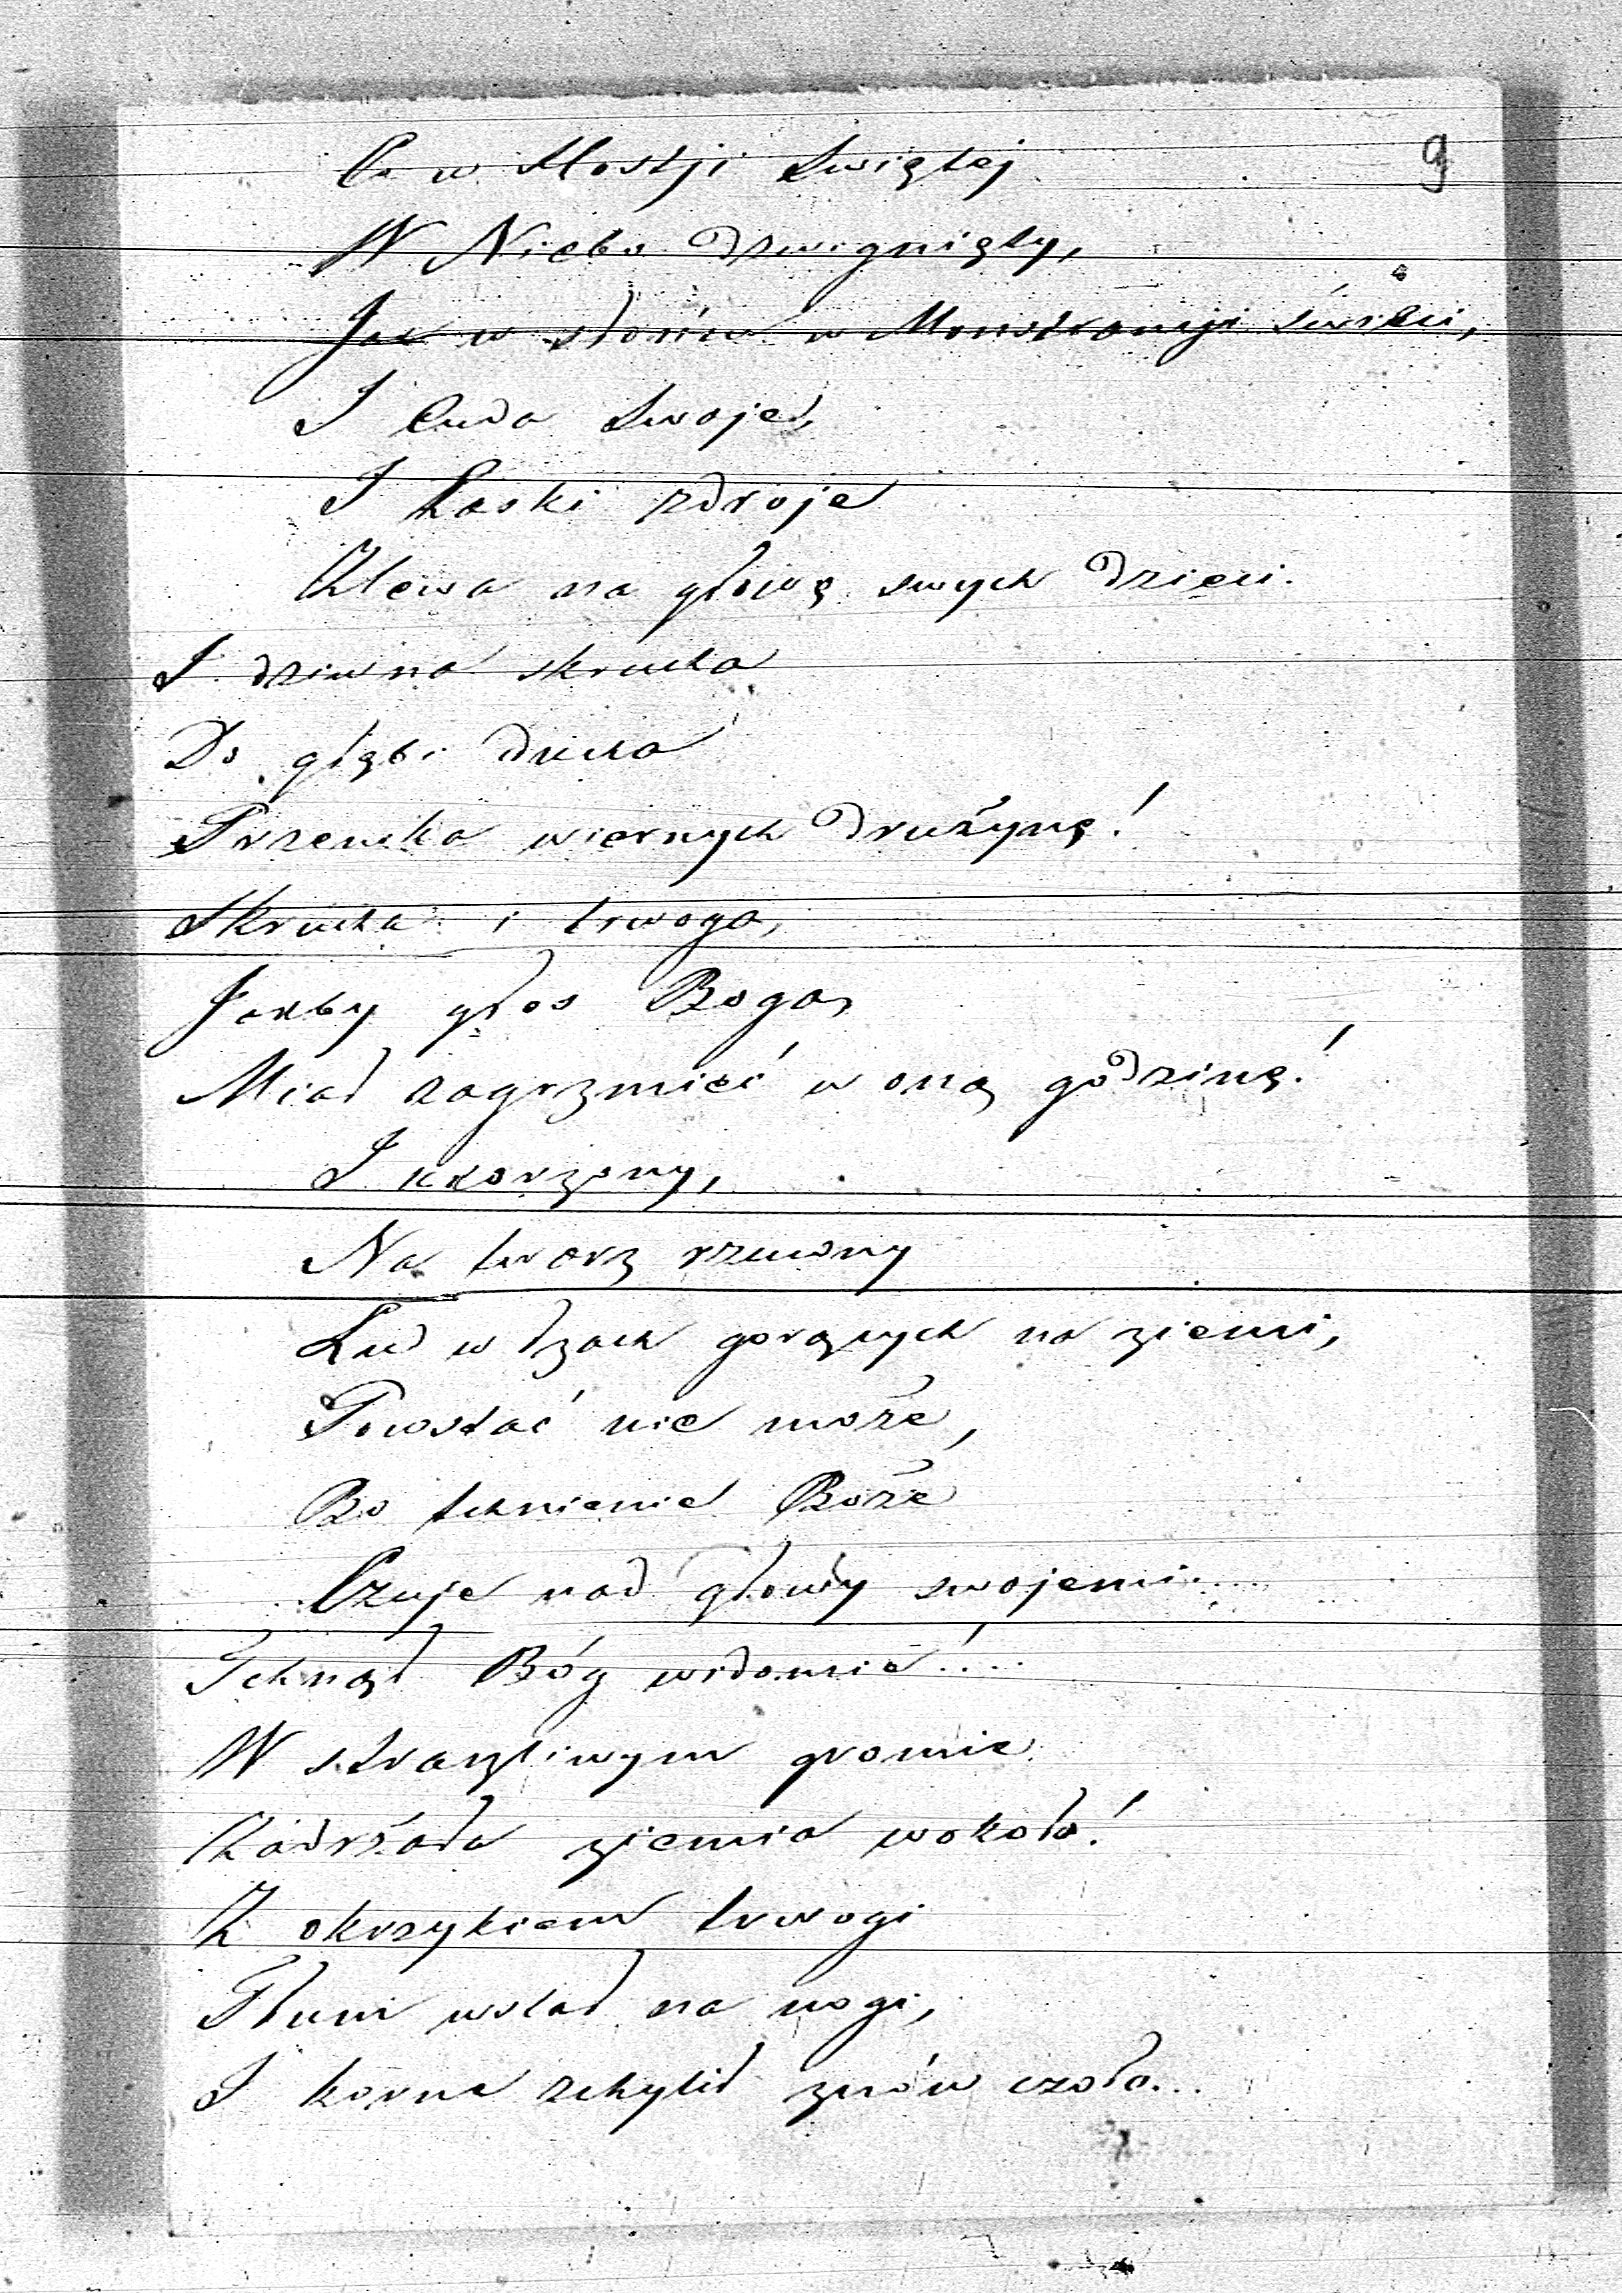 9
Co w Hostji Swiętej
W Niebo dzwignięty,
Jak w słońcu w Monstrancji świéci,
I Cuda Swoje,
I Łaski zdroje
Zlewa na głowę swych dzieci.
I dziwna skrucha
Do głębi ducha
Przenika wiernych drużynę!
Skrucha i trwoga,
Jakby głos Boga,
Miał zagrzmieć w oną godzinę!
I ukorzony,
Na twarz rzucony
Lud w łzach gorących na ziemi,
Powstać nie może,
Bo tchnienie Boże
Czuje nad głowy swojemi....
Tchnął Bóg widomie!....
W straszliwym gromie
Zadrżała ziemia wokoło!
Z okrzykiem trwogi
Tłum wstał na nogi,
I korne schylił znów czoło...